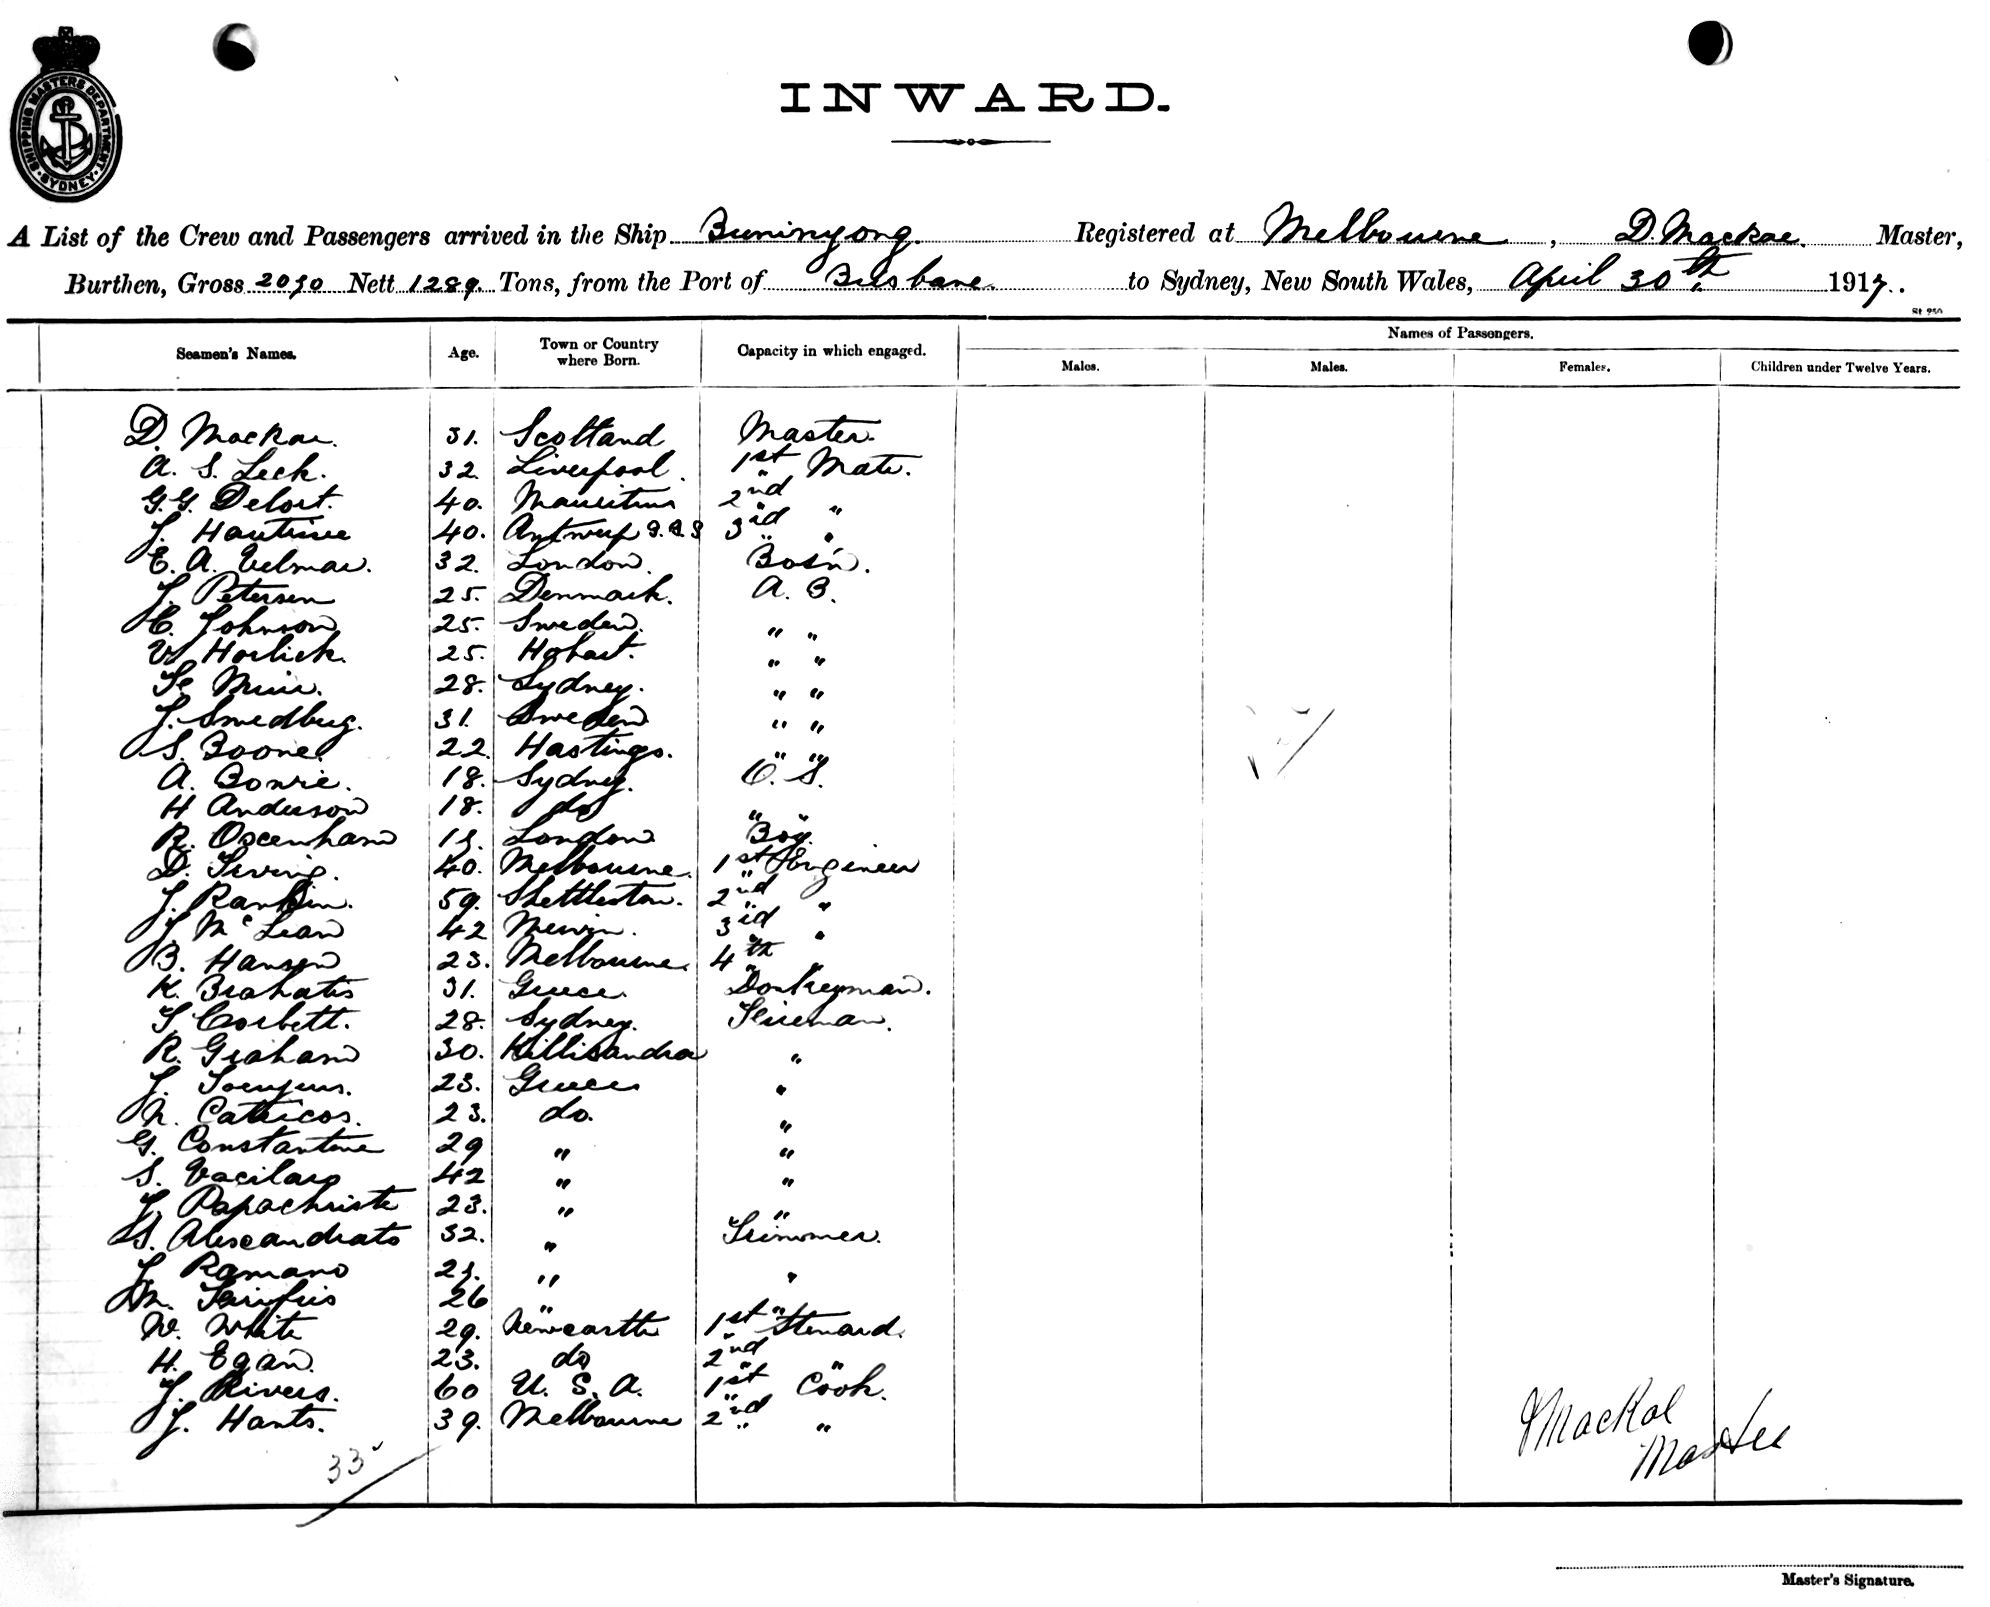 SHIPPING MASTERS DEPARTMENT. SYDNEY.
INWARD.
A List of the Crew and Passengers arrived in the Ship Buninyong. Registered at Melbourne, D. Mackae. Master,
Burthen, Gross 2070 Nett 1289. Tons, from the Port of Brisbane. to Sydney, New South Wales, April 30th 1917.
Names of Passengers.
Seamen's Names. Age. Town or Country where Born. Capacity in which engaged. Males. Males. Females. Children under Twelve Years.
D. Mackae. 31. Scotland Master.
A. S. Leck. 32. Liverpool. 1st Mate.
G. G. Delort. 40. Mauritius 2nd "
J. 40. Antwerp 3rd "
E. A. 32. London. Bos'n.
J. Petersen 25. Denmark. A. B.
C. Johnson 25. Sweden. " "
V. Horlick. 25. Hobart. " "
Muir. 28. Sydney. " "
J. Swedburg. 31. Sweden " "
S. Boone. 22. Hastings. " "
A. Bowie. 18. Sydney. O. S.
H Anderson 18. do " "
R. Oxenham London Boy.
D. Irving. 40. Melbourne. 1st Engineer
J. Rankin. 59. Shettleston. 2nd "
J. McLean 42 3rd "
B. Hansen 23. Melbourne. 4th "
K. Brahatis 31. Greece. Donkeyman.
T. Corbett. 28. Sydney. Fireman.
R. Graham 30. Killisandra "
J. 23. Greece "
N. Catricos. 23. do. "
G. Constantine 29 " "
S. Vacilaro 42 " "
J. Papachriste 23. " "
S. Alexandrato 32. " Trimmer.
J. Romano " "
M. 26 " "
W. White 29. Newcastle 1st Steward.
H. Egan. 23. do 2nd "
J. Rivers. 60 U. S. A. 1st Cook.
J. Hants. 39. Melbourne 2nd "
33
Mackae
Master
Master's Signature.